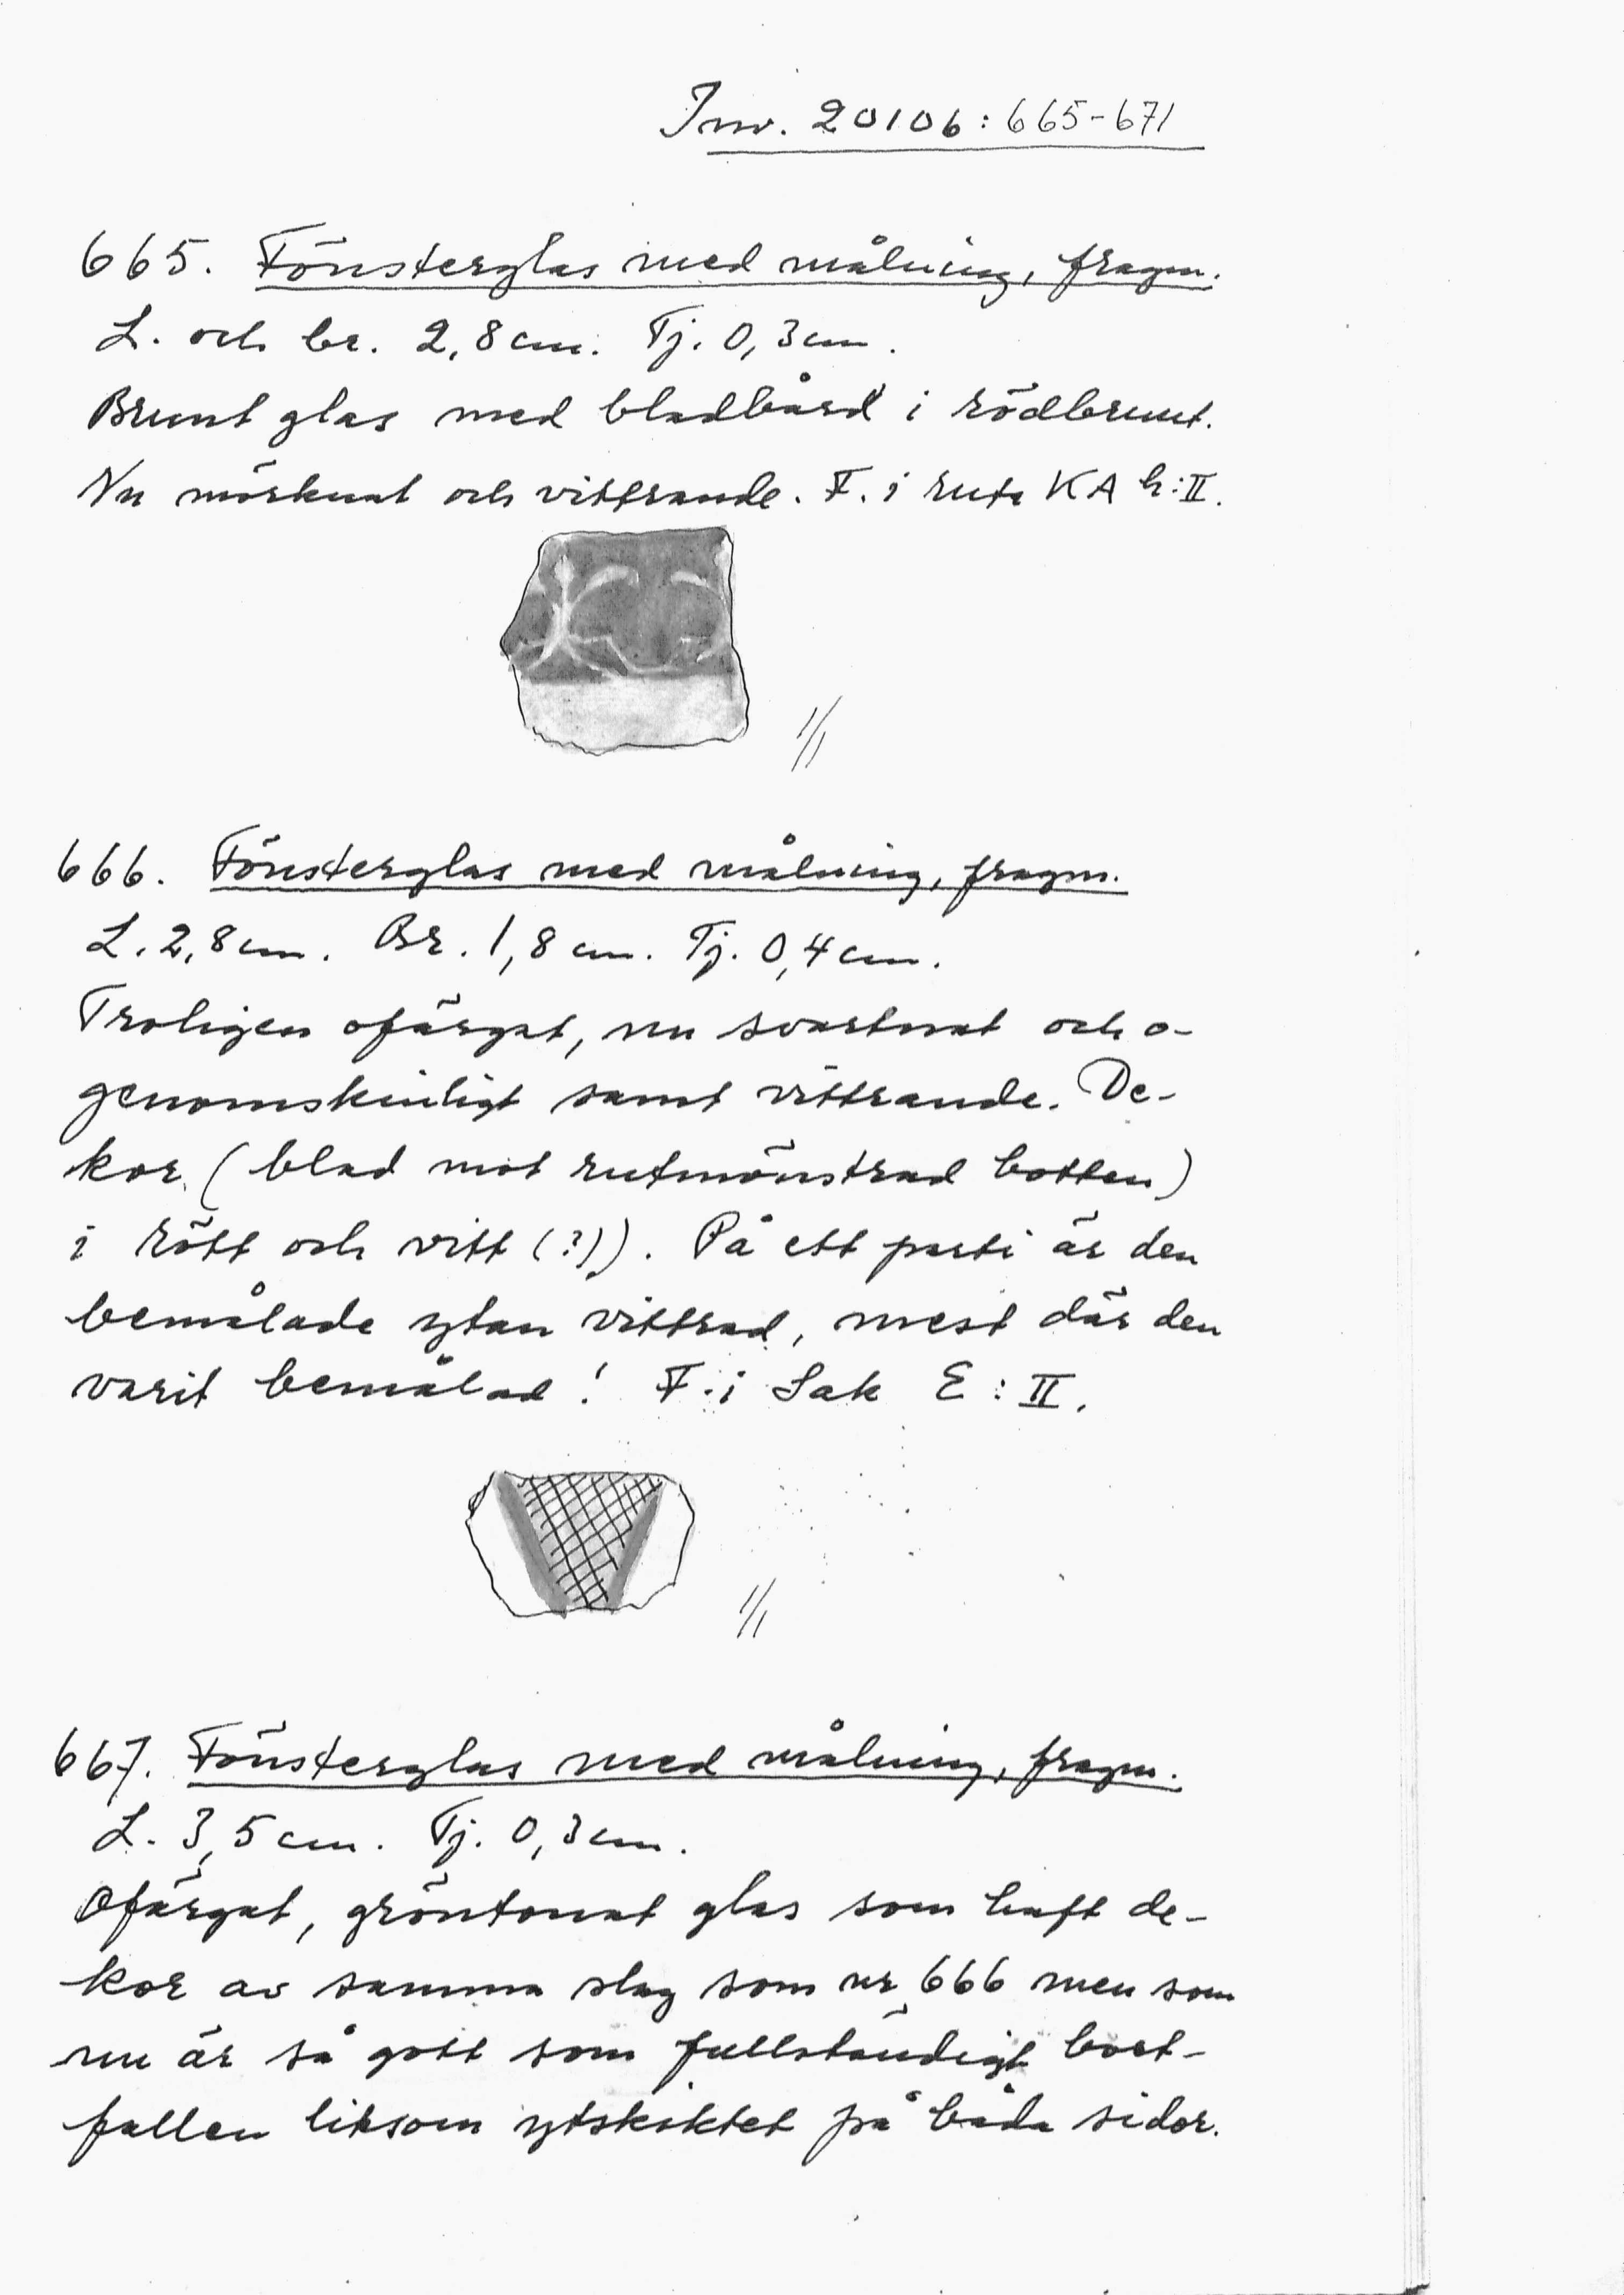 Inv. 20106:665-671
665. Fönsterglas med målning, fragm.
L. och br. 2,8 cm. Tj. 0,3 cm.
Brunt glas med bladbård i rödbrunt.
Nu mörknat och vittrande. F. i ruta KA h:II.
1/1
666. Fönsterglas med målning, fragm.
L. 2,8 cm. Br. 1,8 cm. Tj. 0,4 cm.
Troligen ofärgat, nu svartnat och o-
genomskinligt samt vittrande. De-
kor (blad mot rutmönstrad botten)
i rött och vitt (?)). På ett parti är den
bemålade ytan vittrad, mest där den
varit bemålad! F. i Sak E:II.
1/1
667. Fönsterglas med målning, fragm.
L. 3,5 cm. Tj. 0,3 cm.
Ofärgat, gröntonat glas som haft de-
kor av samma slag som nr 666 men som
nu är så gott som fullständigt bort-
fallen liksom ytskiktet på båda sidor.